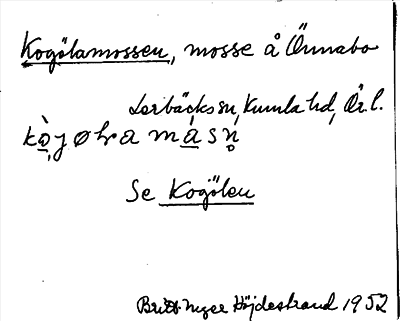 Kogölamossen, mosse å Önnabo
Lerbäcks sn, Kumla hd, Ör l.
Se Kogölen
Britt Höjdestrand 1952